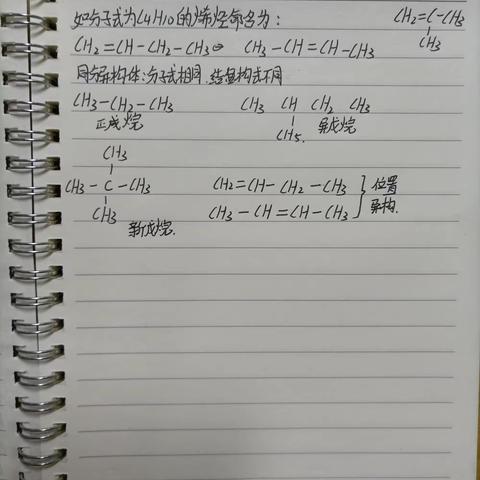 如分子式为C4H10的烯烃命名为:
CH2=C-CH3
CH3
CH2=CH-CH2-CH3 CH3-CH=CH-CH3
同分异构体:分子式相同,结构式不同
CH3-CH2-CH3 CH3 CH CH2 CH3
正戊烷 CH5. 异戊烷
CH3
CH3-C-CH3 CH2=CH-CH2-CH3 位置
CH3 CH3-CH=CH-CH3 异构.
新戊烷.